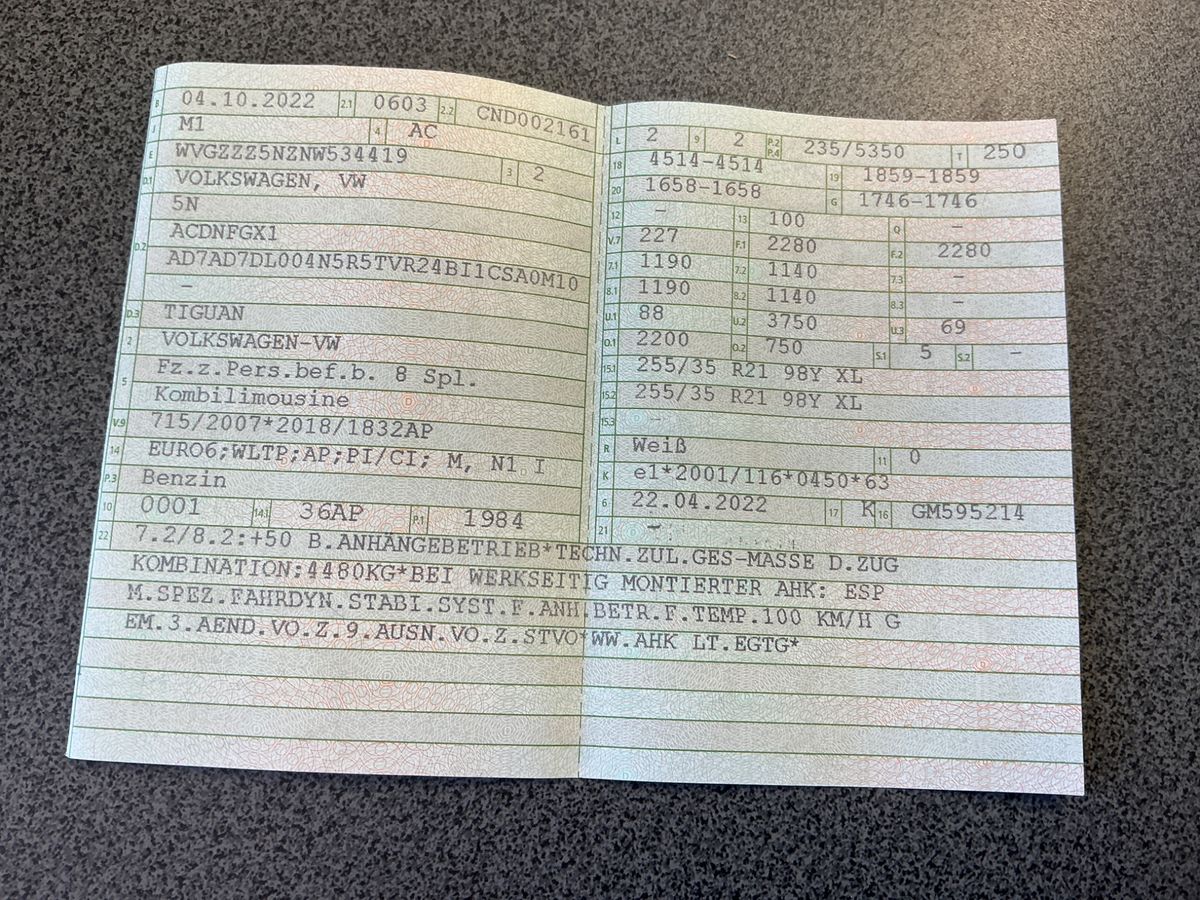 B 04.10.2022 2.1 0603 2.2 CND002161
J M1 4 AC
E WVGZZZ5NZNW534419 3 2
D.1 VOLKSWAGEN, VW
5N
D.2 ACDNFGX1
AD7AD7DL004N5R5TVR24BI1CSA0M10
–
D.3 TIGUAN
2 VOLKSWAGEN-VW
5 Fz.z.Pers.bef.b. 8 Spl.
Kombilimousine
V.9 715/2007*2018/1832AP
14 EURO6;WLTP;AP;PI/CI; M, N1 I
P.3 Benzin
10 0001 14.1 36AP P.1 1984
L 2 9 2 P.2 P.4 235/5350 T 250
18 4514-4514 19 1859-1859
20 1658-1658 G 1746-1746
12 – 13 100 Q –
V.7 227 F.1 2280 F.2 2280
7.1 1190 7.2 1140 7.3 –
8.1 1190 8.2 1140 8.3 –
U.1 88 U.2 3750 U.3 69
O.1 2200 O.2 750 S.1 5 S.2 –
15.1 255/35 R21 98Y XL
15.2 255/35 R21 98Y XL
15.3 –
R Weiß 11 0
K e1*2001/116*0450*63
6 22.04.2022 17 K 16 GM595214
21 –
22 7.2/8.2:+50 B.ANHÄNGEBETRIEB*TECHN.ZUL.GES-MASSE D.ZUG
KOMBINATION;4480KG*BEI WERKSEITIG MONTIERTER AHK: ESP
M.SPEZ.FAHRDYN.STABI.SYST.F.ANH.BETR.F.TEMP.100 KM/H G
EM.3.AEND.VO.Z.9.AUSN.VO.Z.STVO*WW.AHK LT.EGTG*